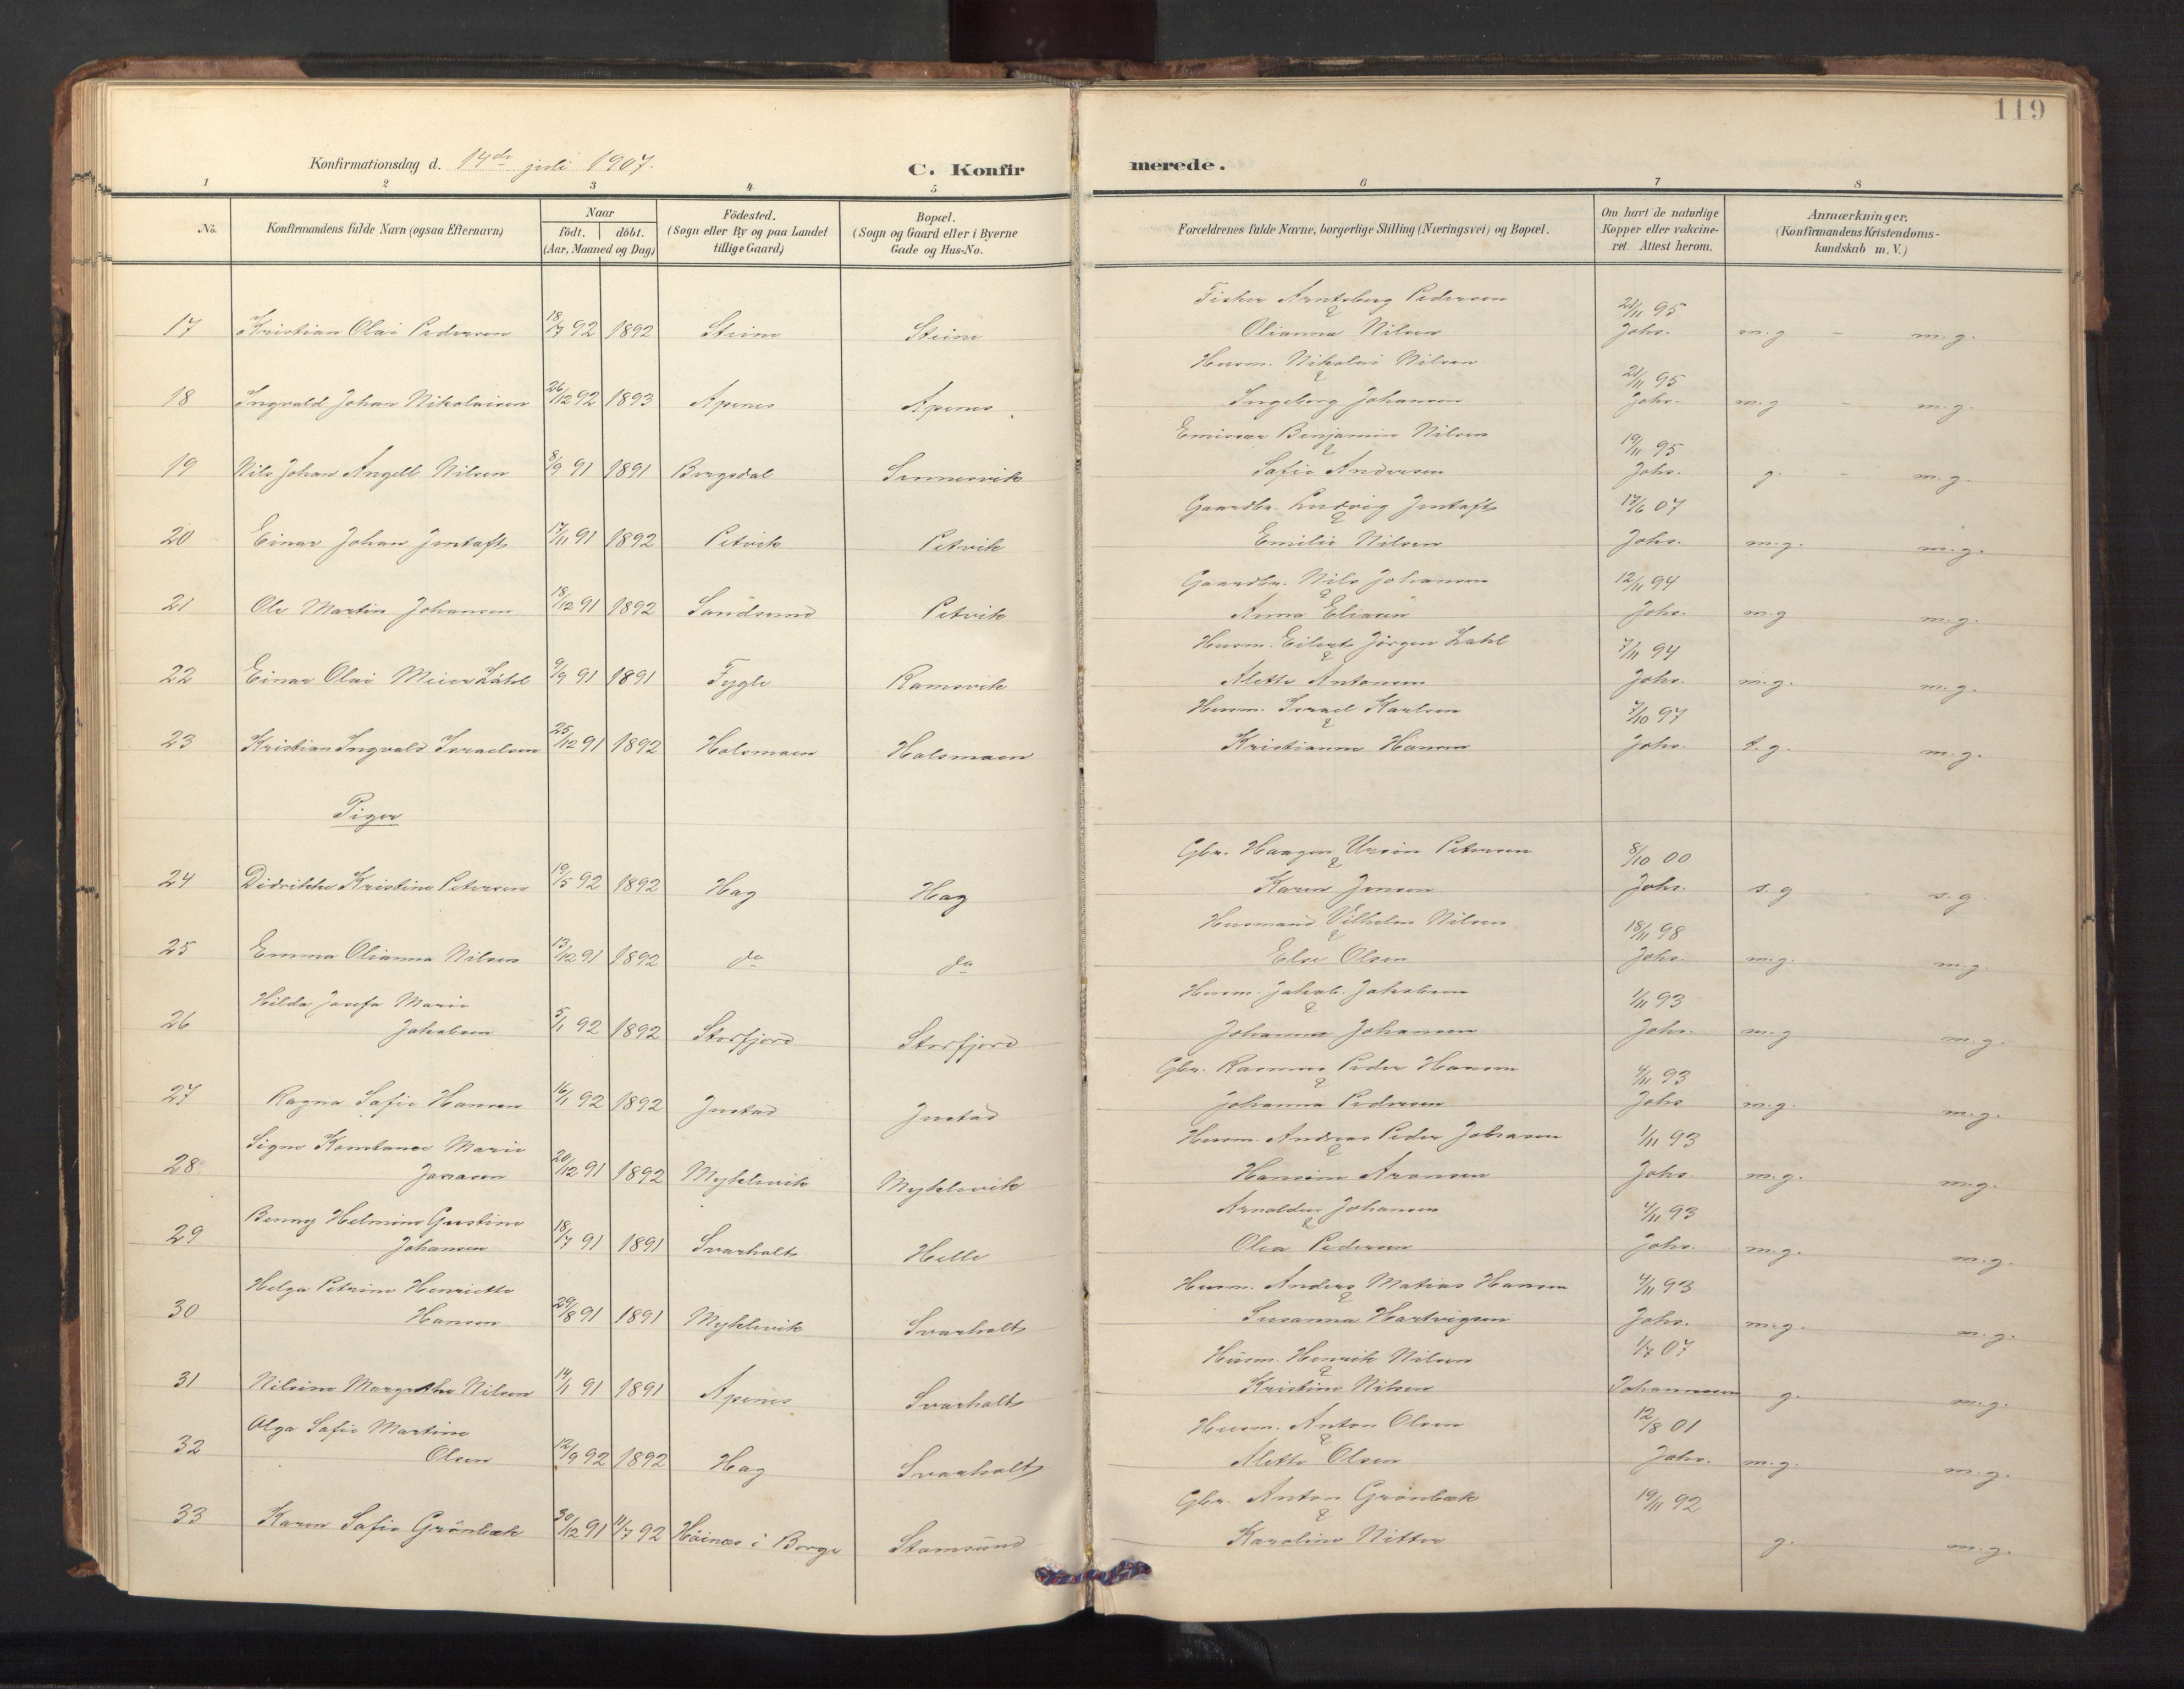 119
Konfirmationsdag d. 14de juli 1907.
C. Konfirmerede.
1 2 3 4 5 6 7 8
No.
Konfirmandens fulde Navn (ogsaa Efternavn)
Naar
födt. döbt.
(Aar, Maaned og Dag)
Födested.
(Sogn eller By og paa Landet
tillige Gaard)
Bopæl.
(Sogn og Gaard eller i Byerne
Gade og Hus-No.
Forældrenes fulde Navne, borgerlige Stilling (Næringsvei) og Bopæl.
Om havt de naturlige
Kopper eller vakcine-
ret. Attest herom.
Anmærkninger.
(Konfirmandens Kristendoms-
kundskab m. V.)
Fisker Arntsberg Pedersen 21/11 95
&
17 Kristian Olai Pedersen 18/7 92 1892 Steine Steine Olianna Nilsen Johs. m.g - m.g.
Husm. Nikolai Nilsen 21/11 95
&
18 Ingvald Johan Nikolaisen 26/12 92 1893 Apenes Apenes Ingeborg Johansen Johs. m.g - m.g.
Emissær Benjamin Nilsen 19/11 95
&
19 Nils Johan Angell Nilsen 8/9 91 1891 Bergsdal Sennesvik Sofie Andersen Johs. g. - m.g.
Gaardbr. Ludvig Jentoft 17/6 07
&
20 Einar Johan Jentoft 17/11 91 1892 Petvik Petvik Emilie Nilsen Johs. m.g. m.g.
Gaardbr. Nils Johansen 12/11 94
&
21 Ole Martin Johansen 18/12 91 1892 Sandsund Petvik Anna Eliasen Johs. m.g m.g.
Husm. Eilert Jörgen Zahl 7/11 94
&
22 Einar Olai Meier Zahl 9/9 91 1891 Fygle Ramsvik Alette Antonsen Johs. m.g. m.g.
Husm. Israel Karlsen 7/10 97
&
23 Kristian Ingvald Israelsen 25/12 91 1892 Holsmoen Holsmoen Kristianna Hansen Johs. t.g. m.g.
Piger
Gbr. Haagen Ursin Petersen 8/10 00
&
24 Didrikke Kristine Petersen 19/5 92 1892 Hag Hag Karen Jensen Johs. s.g - s.g.
Husmand Vilhelm Nilsen 18/11 98
&
25 Emma Olianna Nilsen 13/12 91 1892 do do Else Olsen Johs. m.g. m.g.
Hilda Josefa Marie Husm. Jakob Jakobsen 1/11 93
&
26 Jakobsen 5/1 92 1892 Storfjord Storfjord Johanna Johansen Johs. m.g m.g.
Gbr. Rasmus Peder Hansen 4/11 93
&
27 Ragna Sofie Hansen 16/1 92 1892 Justad Justad Johanna Pedersen Johs m.g. m.g.
Signe Konstance Marie Husm. Andreas Peder Jonasen 1/11 93
&
28 Jonasen 20/12 91 1892 Myklevik Myklevik Hansine Aronsen Johs m.g. m.g.
Benny Helmine Gustine Arnoldus Johansen 4/11 93
&
29 Johansen 18/7 91 1891 Svarholt Helle Olea Pedersen Johs. m.g. m.g.
Helga Petrine Henriette Husm. Anders Matias Hansen 4/11 93
&
30 Hansen 29/8 91 1891 Myklevik Svarholt Susanna Hartvigsen Johs. m.g. m.g.
Husm. Henrik Nilsen 1/7 07
&
31 Nilsine Margrethe Nilsen 14/1 91 1891 Apenes Svarholt Kristine Nilsen Johannessen g. m.g.
Olga Sofie Martine Husm. Anton Olsen 12/8 01
&
32 Olsen 12/9 92 1892 Hag Svarholt Alette Olsen Johs. m.g. m.g.
Gbr. Anton Grönbæk 19/11 92
&
33 Karen Sofie Grönbæk 30/12 91 11/7 92 Höinæs i Borge Stamsund Karoline Nitter g. m.g.